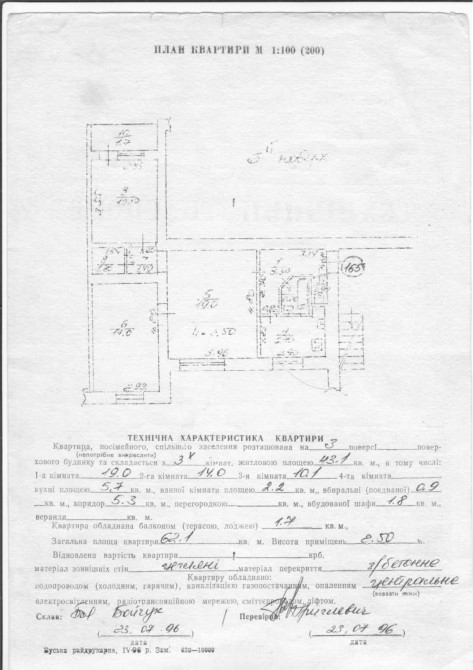 ПЛАН КВАРТИРИ М 1:100 (200)
10
1.7
3
165
5
19.0
h=2.50
5.96
6
14.0
2.99
ТЕХНІЧНА ХАРАКТЕРИСТИКА КВАРТИРИ
Квартира, посімейного, спільного заселення розташована на 3 поверсі поверхового
(непотрібне викреслити)
будинку та складається з 3х кімнат, житловою площею 43.1 кв. м., в тому числі:
1-а кімната 19.0 2-га кімната 14.0 3-я кімната 10.1 4-та кімната
кухні площею 5.7 кв. м., ванної кімната площею 2.2 кв. м., вбиральні (поєднаної) 0.9
кв. м., коридор 5.3 кв. м., перегородкою кв. м., вбудованої шафи 1.8 кв. м.,
веранди кв. м.
Квартира обладнана балконом (терасою, лоджеї) 1.7 кв. м.,
Загальна площа квартири 62.1 кв. м. Висота приміщень 2.50 м.
Відновлена вартість квартири крб.
матеріал зовнішніх стін цегляні матеріал перекриття з/бетонне
Квартиру обладнано:
водопроводом (холодним, гарячим), каналізацією газопостачанням, опаленням центральне
(вказати яким)
електросвітленням, радіотрансляційною мережею, сміттєпроводом, ліфтом.
Склав: Бойчук Перевірив:
23.07.96 23.07.96
(дата) (дата)